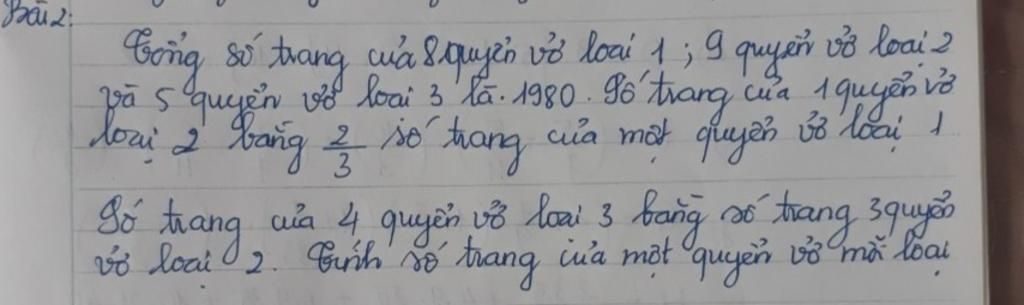 Bài 2:
Tổng số trang của 8 quyển vở loại 1 ; 9 quyển vở loại 2
và 5 quyển vở loại 3 là 1980. Số trang của 1 quyển vở
loại 2 bằng 2/3 số trang của một quyển vở loại 1
Số trang của 4 quyển vở loại 3 bằng số trang 3 quyển
vở loại 2. Tính số trang của một quyển vở mỗi loại